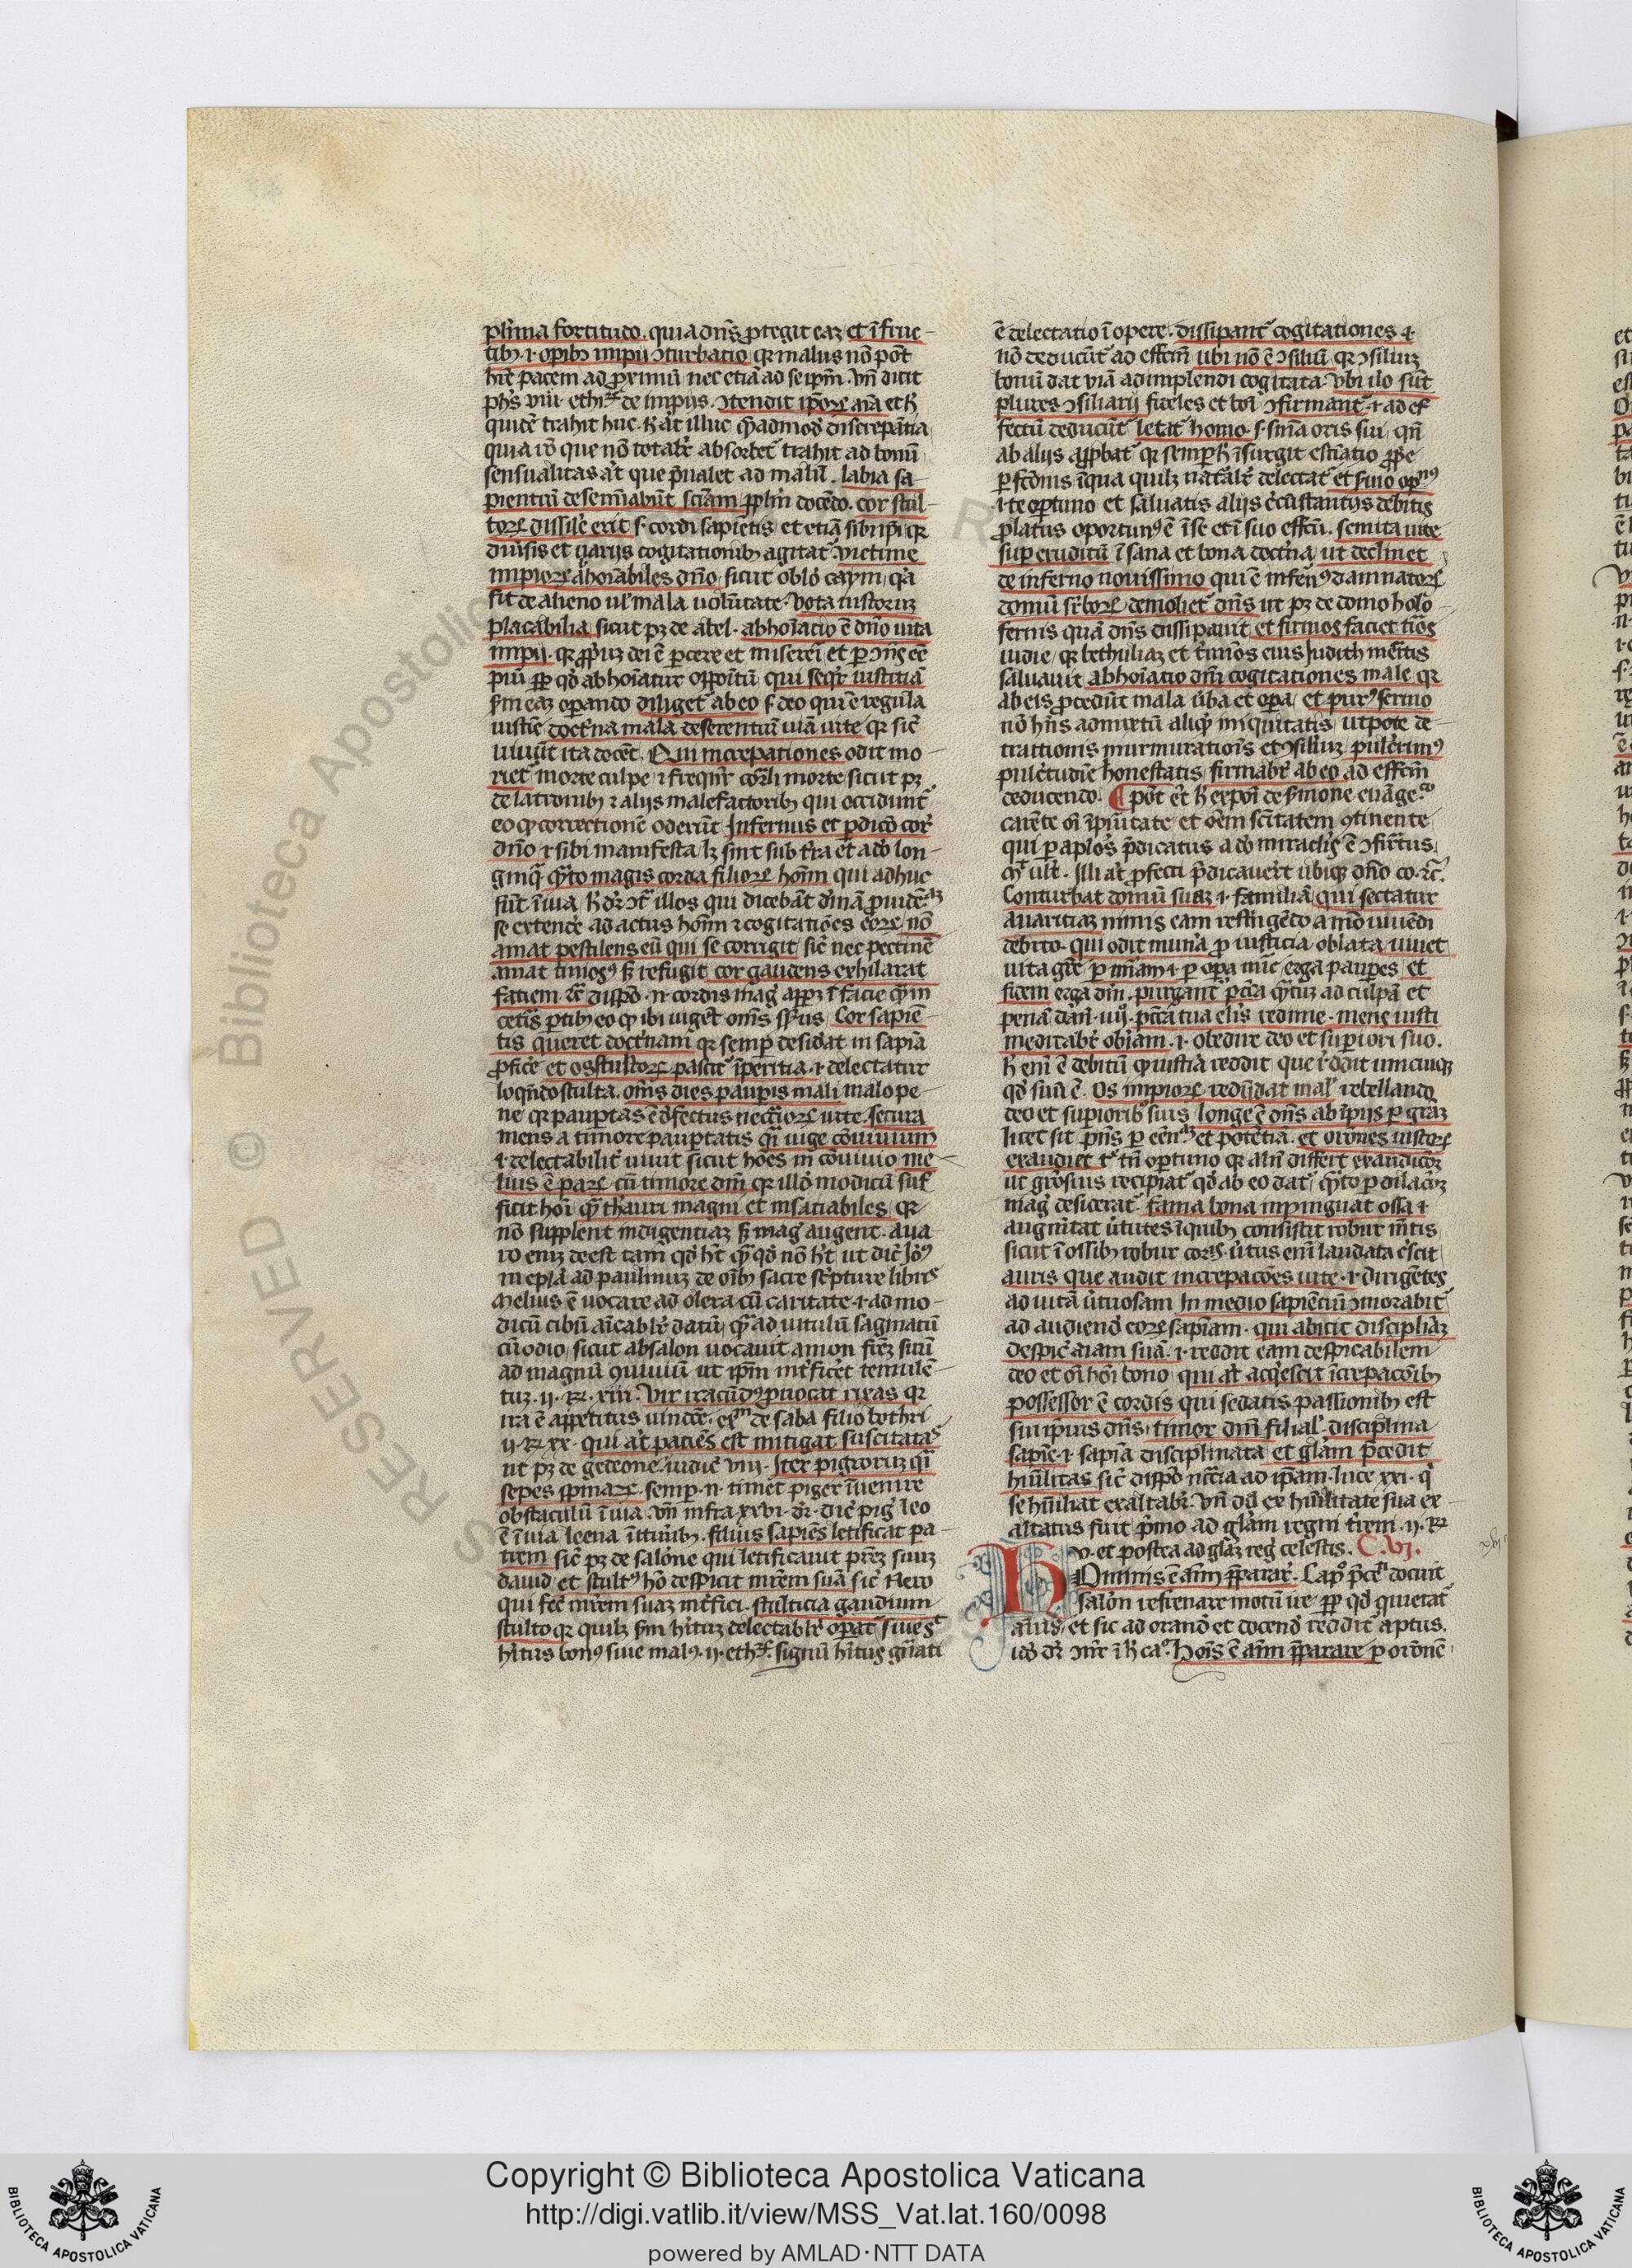 plīma fortitudo. quia dn̄s ꝓtegit eaʒ et ī fruc-
tibꝫ .i. opībꝫ impij ↄturbatio qr malus nō pōt
hr̄e pacem ad ꝓximū nec etiā ad seip̄m. vn̄ dicit
ph̄s viiii. ethiꝝ de impijs. ↄtendit ip̄oꝝ aīa et h̄
quidē trahit huc. h̄ aūt illuc q̄admodū discrepātia
quia rō que nō totalr̄ absorbet̄ trahit ad bonū
sensualitas aūt que p̄ualet ad malū. labia sa
pientiū desemīabūt sciām ꝓpl̄m docēdo. cor stul-
toꝝ dissilē erit s. cordi sapiētis et etiā sibi ip̄i qr
diu̇sis et uarijs cogitationibꝫ agitat̄ victime
impioꝝ abhoīabiles dn̄o sicut oblō caym q̄a
sit de alieno ul̄ mala uolūtate. vota iustoruꝫ
placabilia sicut pꝫ de abel. abhoīatio ē dn̄o uita
impij. qr ꝓpiuꝫ dei ē ꝑcere et misereri et ꝑ ↄn̄s eē
piū ꝓp qđ abhoīatur oppoītū qui seqr̄ iustitiā
sm̄ eaꝫ operando diliget̄ ab eo s. deo qui ē regula
iustitie doctͥna mala deserentiū uiā uite qr sic̄
uiuūt ita docēt. Qui increpationes odit mo-
riet̄ morte culpe ⁊ freqn̄r̄ corꝑli morte sicut pꝫ
de latronibꝫ ⁊ alijs malefactoribꝫ qui occidunt̄
eo qꝫ correctionē oderūt Infernus et ꝑdicō cor̄
dn̄o ⁊ sibi manifesta lꝫ sint sub tr̄a et adō lon-
ginq̄ q̄nto magis corda filioꝝ hom̄ qui adhuc
sūt ī uia h̄ dr̄ ↄͣ illos qui dicebāt dīnā ꝓuidēᵃʒ
se extendē ad actus hom̄ ⁊ cogitatiōes eoꝝ nō
amat pestilens eū qui se corrigit sic̄ nec pectinē
amat tinios⁹ s; refugit cor gaudens exhilarat
faciem. rō dispō .n. cordis mag̓ appꝫ ī facie q̄ in
cetis ꝑtibꝫ eo qꝫ ibi uiget̄ om̄s sp̄us. Cor sapiē-
tis queret doctͥnam qr semꝑ desiđat in sapīa
ꝓficē et os stultoꝝ pascit̄ īperitia .i. delectatur
loqn̄do stulta. om̄s dies pauꝑis mali malo pe-
ne qr pauꝑtas ē dēfectus neccͥoꝝ uite. secura
mens a timore pauꝑtatis q̄i iuge cōuiuium
.i. delectabilit̓ uiuit sicut hoēs in cōuiuio me-
lius ē paꝝ cū timore dn̄i qr illō modicū suf-
ficit hoī q̄ thauri magni et insatiabiles qr
nō supplent indigentiaꝫ s; mag̓ augent. aua
ro eniꝫ deest tam qđ h̄t q̄ qđ nō h̄t ut dic̄ Jo᷎
in epl̄a ad paulinuꝫ de oībꝫ sacre scͥpture libris
melius ē uocare ad olera cū caritate .i. ad mo-
dicū cibū amicablr̄ datū q̄ ad uitulū saginatū
cū odio sicut absalon uocauit amon fr̄eꝫ suū
ad magnū ↄuiuiū ut ip̄m int̓ficēt temulē-
tuꝫ. ij. R̄. xiii. vir iracūd⁹ ꝓuocat rixas qr
ira ē appetitus uindcē. exᵐ de saba filio bothri
ij. R̄ xx. qui aūt patiēs est mitigat suscitatas
ut pꝫ de gedeone. iudic̄ viij. Iter pigroruꝫ q̄i
sepes spinaꝝ. semꝑ .n. timet piger īuenire
obstaculū ī uia. vn̄ infra xxvi. dr̄. dic̄ pig̓ leo
ē ī uia leena ī itinibꝫ. filius sapiēs letificat pa-
trem sic̄ pꝫ de salōne qui letificauit pr̄eꝫ suuꝫ
dauid et stult⁹ hō despicit mr̄em suā sic̄ Nero
qui fec̄ mr̄em suaꝫ int̓fici. stulticia gaudium
stulto qr quilꝫ sm̄ h̄ituꝫ delectablr̄ oꝑat̄ siue sᵗ
h̄itus bon⁹ siue mal⁹. ij. eth̄. signū h̄itus gn̄ati
ē delectatio ī opere. dissipant̄ cogitationes .i.
nō deducūt̄ ad effcm̄ ubi nō ē ↄsiliū qr ↄsiliuꝫ
bonū dat viā adimplendi cogitata. vbi ūo sūt
plures ↄsiliarij fideles et boī ↄfirmant̄ .i. ad ef
fectū deducūt̄ letat̄ homo. s. sniā oris sui qn̄
ab alijs apꝓbat̄ qr semꝑ h̄ īsurgit estīatio ꝓpe
ꝑfcōnis ī qua quilꝫ nātalr̄ delectat̄ et sermo oꝑn⁹
.i. te oꝑtuno et saluatis alijs cͥcūstantijs debitis
ꝓlatus oportun⁹ ē ī se et ī suo effcū. semita uite
super eruditū ī sana et bona doctͥna ut declinet
de inferno nouissimo qui ē infern⁹ damnatoꝝ
domū suꝑboꝝ demoliet̄ dn̄s ut pꝫ de domo holo-
fernis quā dn̄s dissipauit et firmos faciet tīos
uidie qr bethuliaꝫ et tīnos eius Judith mēitis
saluauit abhoīatio dn̄i cogitationes male qr
ab eis ꝓcedūt mala ūba et oꝑa et pur⁹ sermo
nō hn̄s admixtū aliqͥd iniquitatis utpote de-
tractionis murmurationis et ↄsiliuꝫ pulcͥrim⁹
pulcͥtudie honestatis firmabr̄ ab eo ad effcm̄
deducendo. ¶ pōt et̄ h̄ expoī de sͬmone euāgeᶜᵒ
carēte oī īpūitate et oēm scītatem ↄtinente
qui ꝑ apl̄os p̄dicatus adō miraclis̄ ē ↄfirtus
mͬ ult̄. Illi aūt ꝓfecti p̄dicauert̄ ubiqꝫ dn̄o co. ⁊c̄.
Conturbat domū suaꝫ .i. familiā qui sectatur
auaritiaꝫ nimis eam restrīgēdo a mō uiuēdi
debito. qui odit muna ꝓ iusticia oblata uiuet
uita gr̄e ꝑ miāam .i. ꝑ oꝑa mīe erga pauꝑes et
fidem erga dm̄. purgant̄ pctā q̄ntuꝫ ad culpā et
penā dān. iiij. pctā tua elis̄ redime. mens iusti
meditabr̄ obīam .i. obedire deo et suꝑiori suo.
h̄ enī ē debitū qꝫ iustiā reddit que r̄ddit unicuiqꝫ
qđ suū ē. Os impioꝝ redūdat mal̄ rebellando
deo et suꝑioribꝫ suis longe ē dn̄s ab īpijs ꝑ grāʒ
licet sit p̄ns ꝑ eēnᵃʒ et potētiā. et or̄ones iustoꝝ
exaudiet tͤ tn̄ oꝑtuno qr aln̄ differt exaudicōʒ
ut gr̄osius recipiat̄ qđ ab eo dat̄ q̄nto ꝑ dilacōʒ
mag̓ desiderat̄. fama bona inpinguat ossa .i.
augm̄tat ūtutes ī quibꝫ consistit robur mētis
sicut ī ossibꝫ robur corꝑis. ūtus enī laudata cͬscit
auris que audit increpacōes uite .i. dirigētes
ad uitā ūtuosam In medio sapiētiū ↄmorabit̄
ad audiend̓ eoꝝ sapīam. qui abicit disciplīaꝫ
despic̄ aīam suā .i. reddit eam despicabilem
deo et oī hoī bono qui aūt acqͥescit īcrepacōibꝫ
possessor ē cordis qui sedatis passionibꝫ est
sui ip̄ius dn̄s. timor dn̄i filial̄. disciplina
sapīe .i. sapīa disciplinata et glām p̄cedit
humilitas sic̄ dispō nccͥa ad ip̄am. luce xxi. qͥ
se humiliat exaltabr̄. vn̄ dd̄ ex humilitate sua ex-
altatus fuit p̄mo ad glām regni tr̄eni. ij. R̄
v. et postea ad glāꝫ reg̓ celestis. C. vj.
HOminis ē aīm p̄parar̄. Cap̓ p̄cͣ docuit
salōn refrenare motū ire ꝓp qđ quietat̄
aīus et sic ad orand̓ et docend̓ reddit̄ aptus.
iđo dr̄ ↄnr̄ ī h̄ caᵒ. Hoīs ē aīm p̄parare ꝑ or̄onē
Copyright © Biblioteca Apostolica Vaticana
http://digi.vatlib.it/view/MSS_Vat.lat.160/0098
powered by AMLAD·NTT DATA
BIBLIOTECA APOSTOLICA VATICANA
BIBLIOTECA APOSTOLICA VATICANA